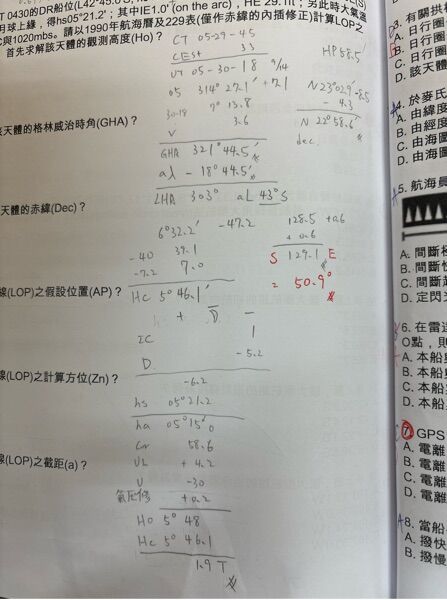 T 0430的DR船位(L42°45.0'S,
月球上緣，得hs05°21.2'；其中IE1.0'(on the arc)，HE 29.1ft；另此時大氣溫
C與1020mbs。請以1990年航海曆及229表(僅作赤緣的內插修正)計算LOP之
首先求解該天體的觀測高度(Ho)？
CT 05-29-45
CEst 33
UT 05-30-18 9/4
HP 58.5'
05 314° 27.1' +7.1
30-18 7° 13.8
V 3.6
N 23°02.9 -8.5
- 4.3
N 22° 58.6'
dec.
該天體的格林威治時角(GHA)？
GHA 321° 44.5'
aλ - 18° 44.5'
LHA 303° aL 43° S
天體的赤緯(Dec)？
6° 32.2' -47.2
-40 39.1
-7.2 7.0
Hc 5° 46.1'
128.5 +0.6
+ 0.6
S 129.1 E
= 50.9°
線(LOP)之假設位置(AP)？
+ D -
IC 1
D - 5.2
線(LOP)之計算方位(Zn)？
-6.2
hs 05° 21.2
ha 05° 15'0
Cor 58.6
線(LOP)之截距(a)？
U2 + 4.2
U -30
氣壓修 +0.2
Ho 5° 48
Hc 5° 46.1
1.9 T
3. 有關拱
A. 日行圈
B. 日行圈
C. 日行圈
D. 該天體
4. 於麥氏
A. 由緯度
B. 由經度
C. 由海圖
D. 由海圖
5. 航海員
A. 間斷極
B. 間斷快
C. 間斷
D. 定閃
6. 在雷達
O點，則
A. 本船
B. 本船
C. 本船
D. 本船
7. GPS
A. 電離
B. 電離
C. 電離
D. 電離
8. 當船
A. 撥快
B. 撥慢